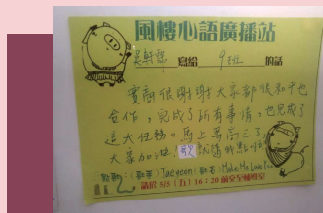 風樓心語廣播站
寫給 9班 的話
實商很謝謝大家都很和平也
合作,完成了所有事情,也完成了
這大任務。馬上要高三了
大家加油
點歌: (歌手) Taeyeon (歌名) Make Me Love You
請於 5/5 (五) 16:20 前交至輔導室